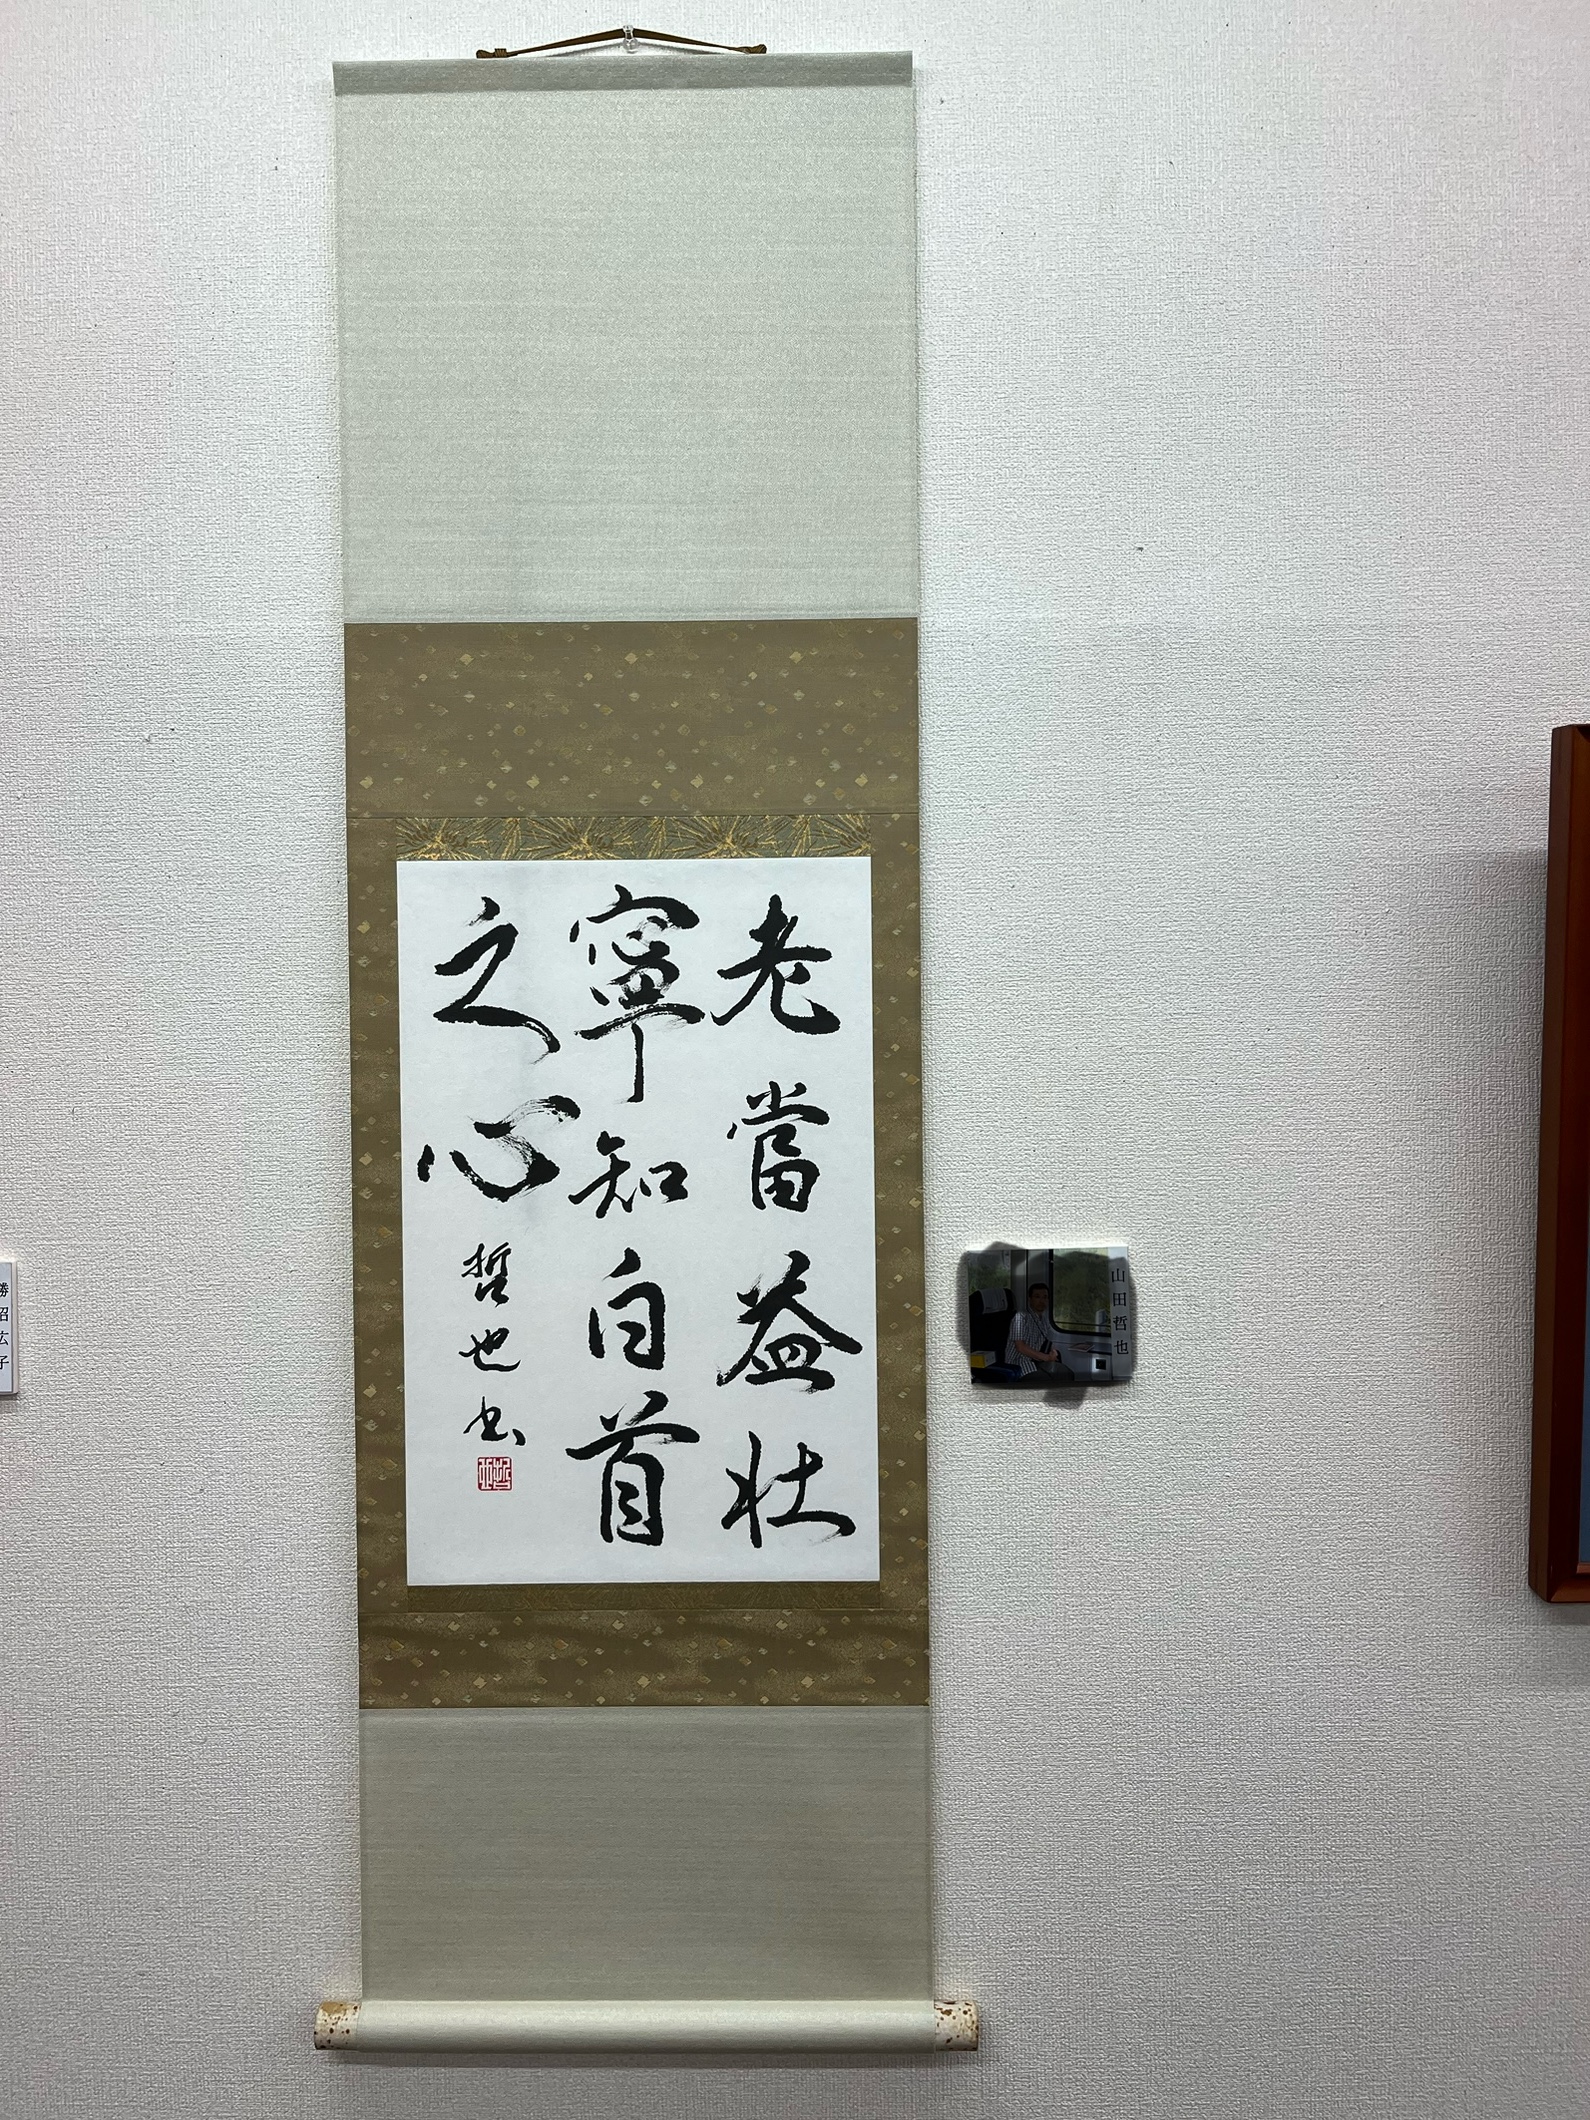 老當益壮
寧知白首
之心
哲也書
山田哲也
勝沼広子